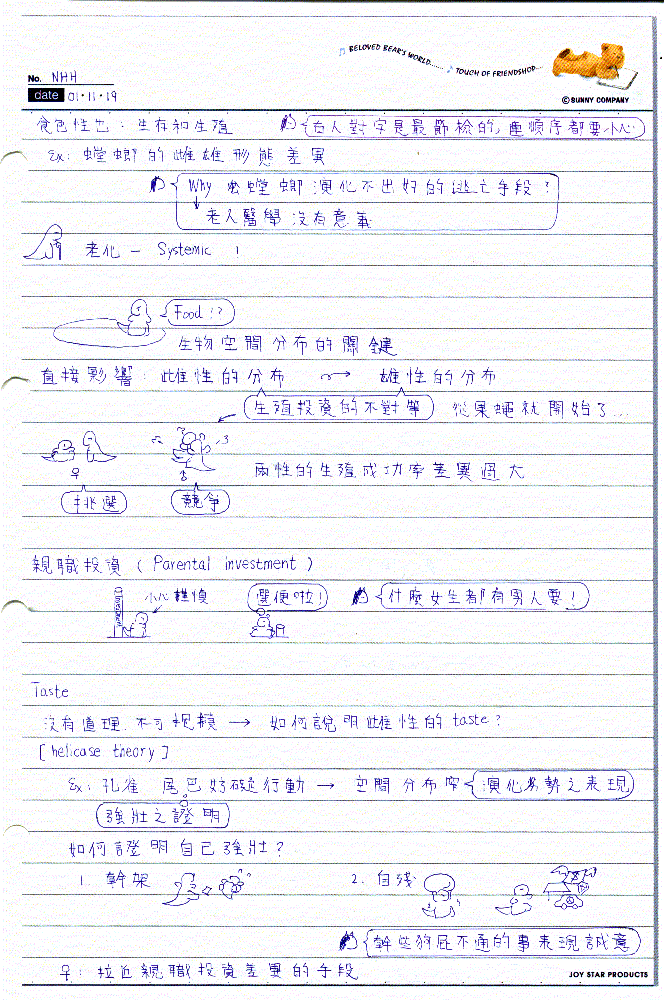 BELOVED BEAR'S WORLD.....
TOUCH OF FRIENDSHOP...
©SUNNY COMPANY
No. NHH
date 01.11.19
食色性也：生存和生殖
古人對字是最節儉的,連順序都要小心
Ex: 螳螂的雌雄形態差異
Why 公螳螂演化不出好的逃亡手段?
老人醫學沒有意義
老化 — Systemic !
Food!?
生物空間分布的關鍵
直接影響：雌性的分布 → 雄性的分布
生殖投資的不對等 從果蠅就開始了...
♀ ♂ 兩性的生殖成功率差異過大
挑選 競爭
親職投資 ( Parental investment )
小心謹慎 隨便啦! 什麼女生都有男人要!
Taste
沒有道理,不可捉摸 → 如何說明雌性的 taste?
[helicase theory]
Ex: 孔雀 尾巴妨礙行動 → 空間分布窄 演化劣勢之表現
強壯之證明
如何證明自己強壯?
1. 幹架 2. 自殘
幹些狗屁不通的事表現誠意
♀: 拉近親職投資差異的手段
JOY STAR PRODUCTS